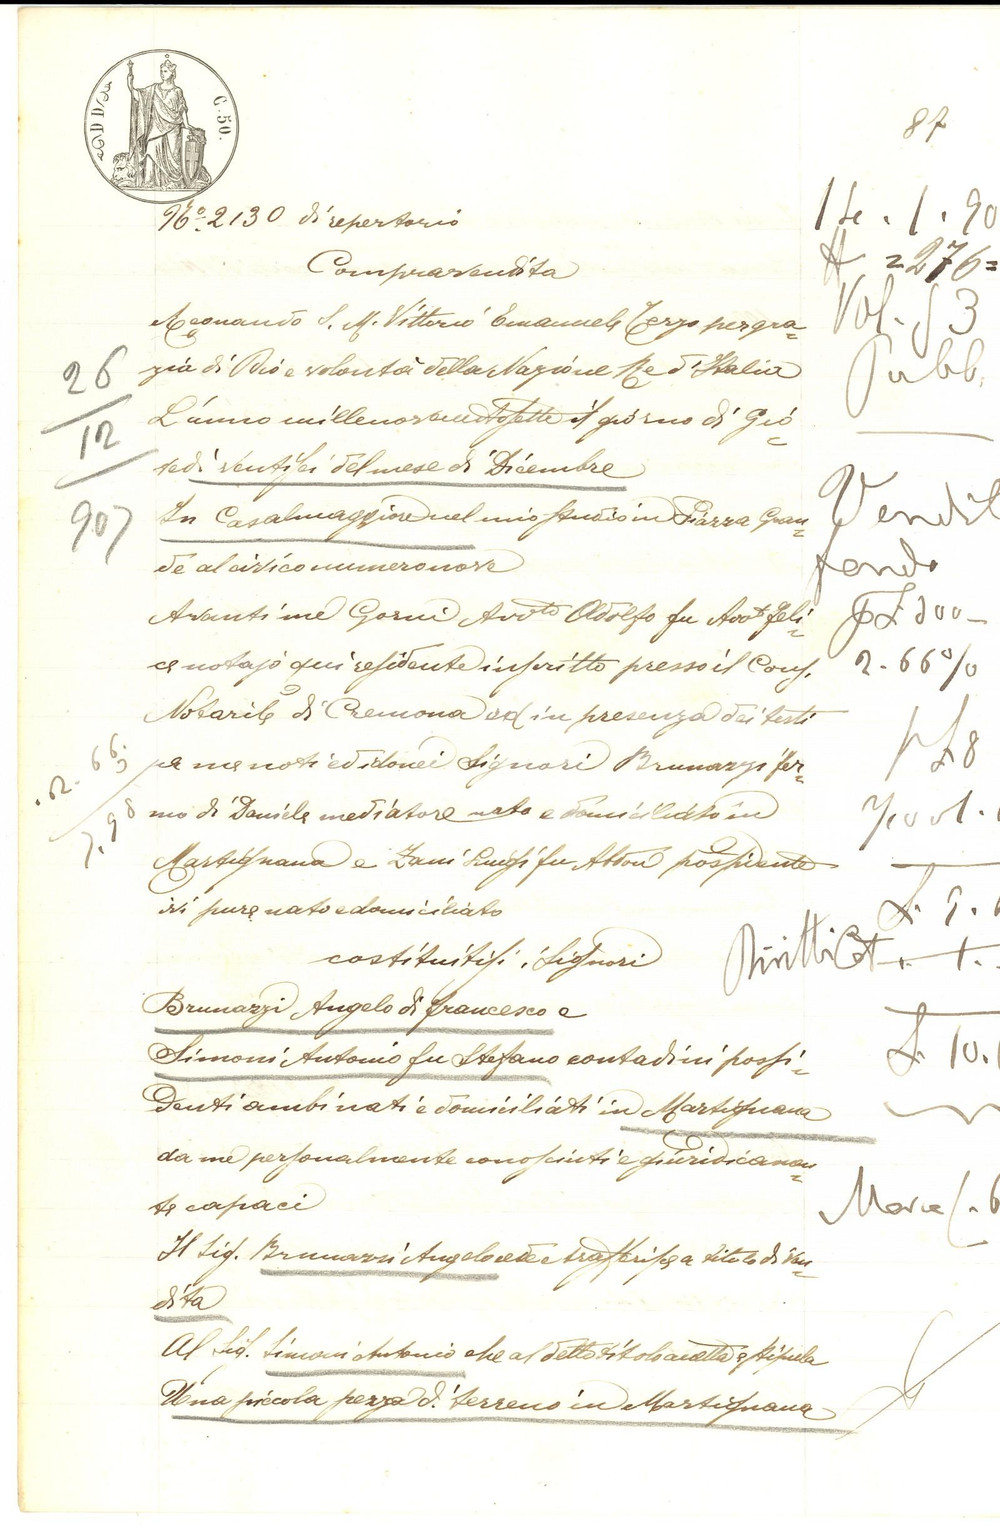 C. 50.
87
N.º 2130 di repertorio
Compravendita
Regnando S. M. Vittorio Emanuele Terzo per gra=
zia di Dio e volontà della Nazione Re d'Italia
L'anno millenovecentosette il giorno di Gio=
vedi ventisei del mese di Dicembre
In Casalmaggiore nel mio studio in Piazza Gran=
de al civico numero nove
Avanti me Gorni Avv.to Adolfo fu Avv.t Feli=
ce notajo qui residente inscritto presso il Cons.
Notarile di Cremona ed in presenza dei testi
pe me noti ed idonei Signori Brunazzi Fer=
mo di Daniele mediatore nato e domiciliato in
Martignana e Zani Luigi fu possidente
ivi pure nato e domiciliato
costituitisi i Signori
Brunazzi Angelo di Francesco e
Simoni Antonio fu Stefano contadini possi=
denti ambi nati e domiciliati in Martignana
da me personalmente conosciuti e giuridicamen=
te capaci
Il Sig. Brunazzi Angelo cede e trasferisce a titolo di ven=
dita
Al Sig. Simoni Antonio che al detto titolo accetta e stipula
Una piccola pezza di terreno in Martignana
26
12
907
2.66
3
7.98
1 . 90
276=
Vol. 53
Pubb.
Vendit
fondo
300-
2.66%
8
10.